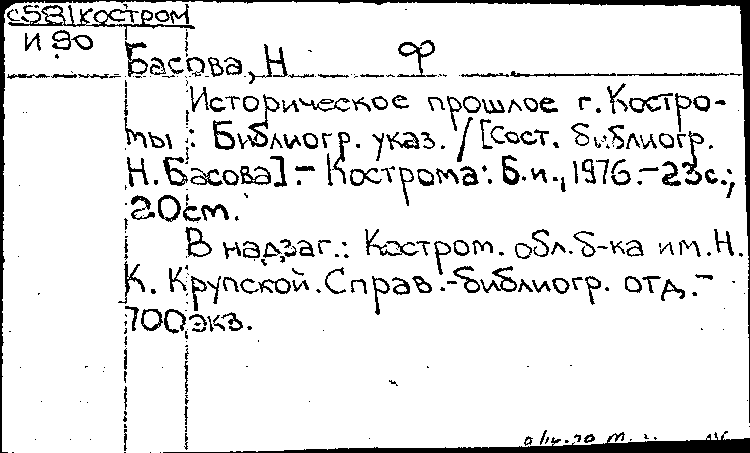 с581костром
И 90
Басова, Н
Историческое прошлое г. Костро-
мы : Библиогр. указ. / [Сост. библиогр.
Н. Басова]. - Кострома : Б.и., 1976. - 23с.;
20см.
В надзаг.: Костром. обл. б-ка им. Н.
К. Крупской. Справ.-библиогр. отд. -
700экз.